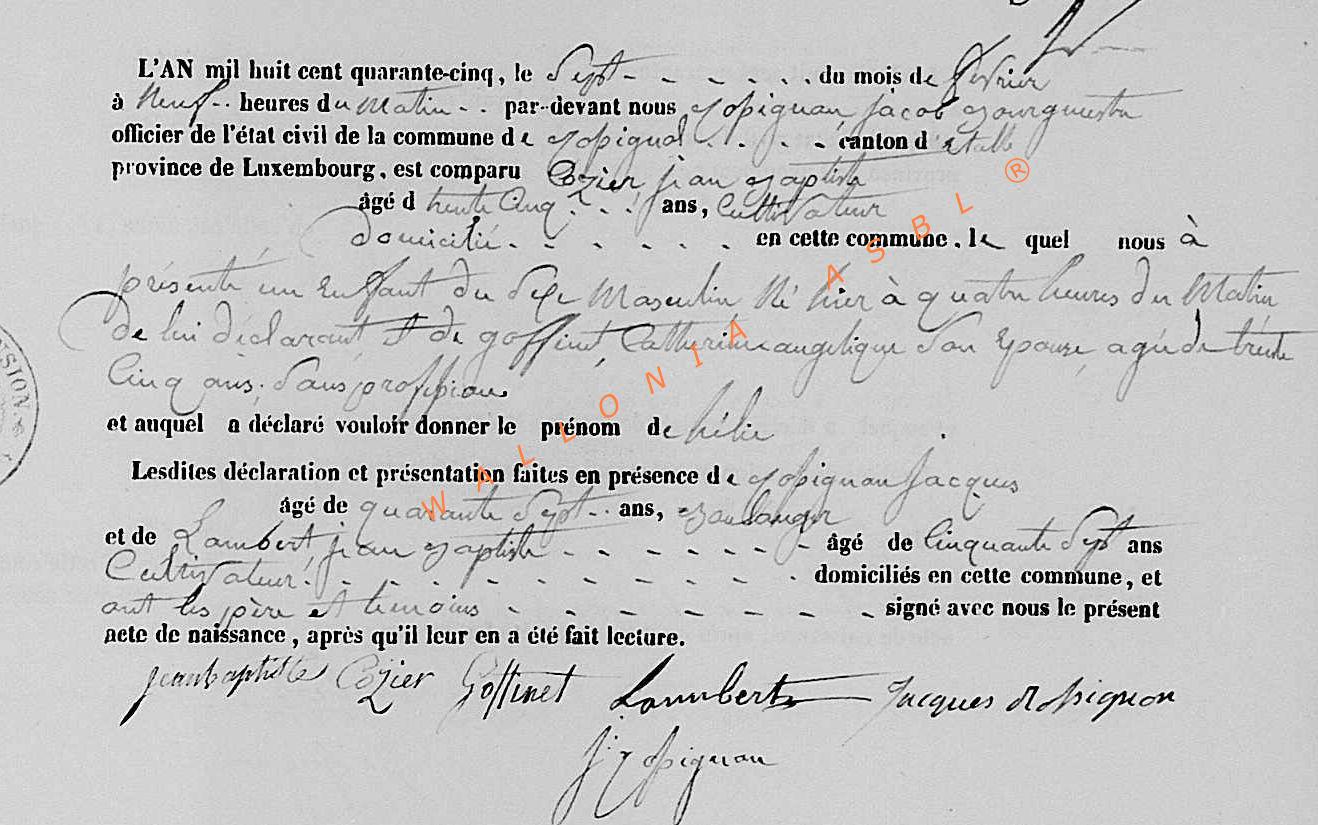 L'AN mil huit cent quarante-cinq, le Sept du mois de février
à Neuf heures du Matin par-devant nous Jacob Bourguestre
officier de l'état civil de la commune de canton d'étalle
province de Luxembourg, est comparu Cozier jean Baptiste
âgé d trente Cinq ans, Cultivateur
domicilié en cette commune, le quel nous à
présenté un Enfant du Sexe Masculin Né hier à quatre heures du Matin
de lui déclarant Et de goffinet Catherine angelique Son Epouse, agée de trente
Cinq ans, Sans proffession
et auquel a déclaré vouloir donner le prénom de hélie
Lesdites déclaration et présentation faites en présence de Jacques
âgé de quarante Sept ans, Boulanger
et de Lambert jean Baptiste âgé de Cinquante Sept ans
Cultivateur domiciliés en cette commune, et
ont les père et temoins signé avec nous le présent
acte de naissance, après qu'il leur en a été fait lecture.
jeanbaptiste Cozier Goffinet Lambert Jacques
WALLONIA ASBL ®
SION